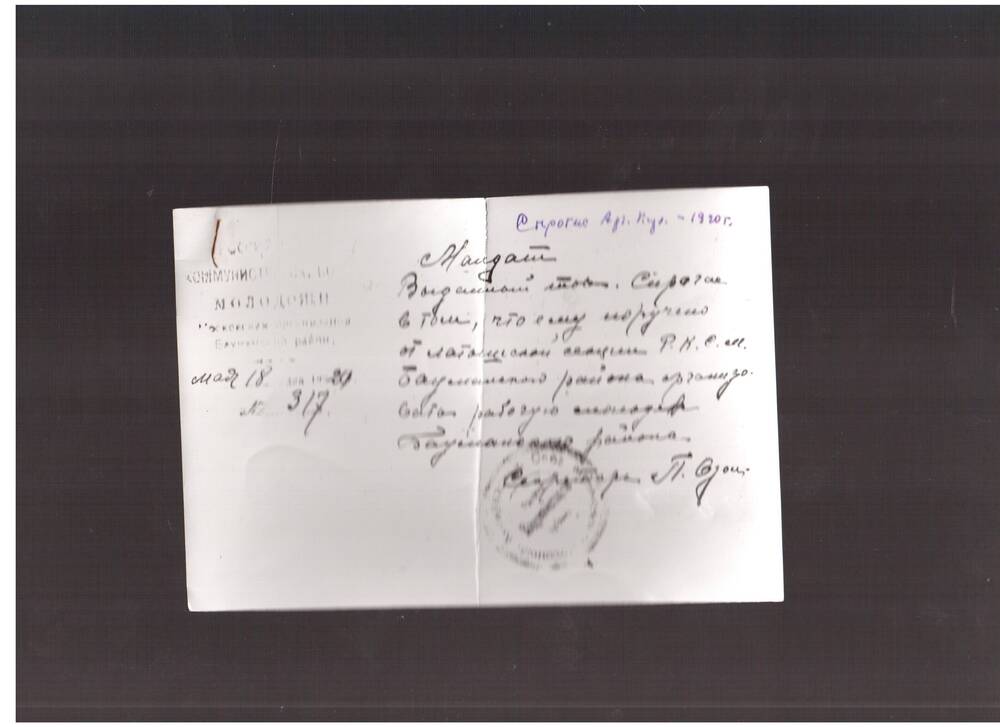 Спрогис Арт. Кул. - 1920г.
КОММУНИСТ
МОЛОДЕЖИ
Московская организация
Бауманский район
мая 18 дня 1920
№ 317
Мандат
Выданный тов. Спрогис
в том, что ему поручено
от латышской секции Р.К.С.М.
Бауманского района организо-
вать рабочую молодежь
Бауманского района
Секретарь П. Озол